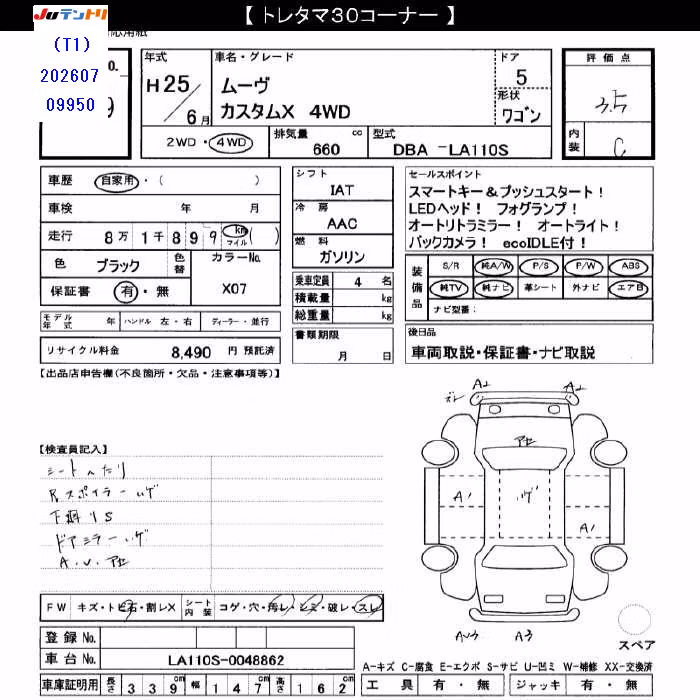 【 トレタマ30コーナー 】
JUテントリ
(T1)
202607
09950
年式 車名・グレード ドア 評価点
H25/6月 ムーヴ 5 3.5
カスタムX 4WD 形状 ワゴン
2WD・4WD 排気量 660 cc 型式 DBA -LA110S 内装 C
車歴 自家用・( )
車検 年 月
走行 8万1千899 km マイル ( )
色 ブラック 色替 カラーNo.
保証書 有・無 X07
モデル年式 年 ハンドル 左・右 ディーラー・並行
リサイクル料金 8,490 円 預託済
シフト IAT
冷房 AAC
燃料 ガソリン
乗車定員 4 名
積載量 kg
総重量 kg
書類期限
月 日
セールスポイント
スマートキー&プッシュスタート!
LEDヘッド! フォグランプ!
オートリトラミラー! オートライト!
バックカメラ! ecoIDLE付!
装備品 S/R 純A/W P/S P/W ABS
純TV 純ナビ 革シート 外ナビ エアB
ナビ型番:
後日品
車両取説・保証書・ナビ取説
【出品店申告欄(不良箇所・欠品・注意事項等)】
【検査員記入】
シートヘタリ
Rスポイラーハゲ
下廻りS
ドアミラーハゲ
A.U.アセ
ズレ A2 A2
アセ
A1 ハゲ A1
AU3 A3
スペア
FW キズ・トビ石・割レX シート内装 コゲ・穴・汚レ・シミ・破レ・スレ
登録No.
車台No. LA110S-0048862
車庫証明用 長さ 339cm 幅 147cm 高さ 162cm
A-キズ C-腐食 E-エクボ S-サビ U-凹ミ W-補修 XX-交換済
工具 有・無 ジャッキ 有・無